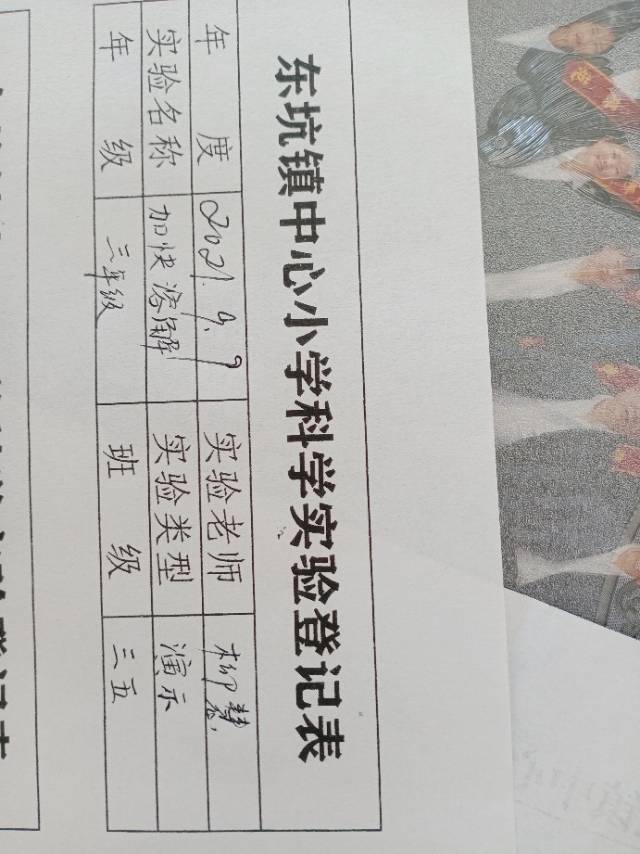 东坑镇中心小学科学实验登记表
年 度 2021.9.9 实验老师 柳慧
实验名称 加快溶解 实验类型 演示
年 级 三年级 班 级 三五